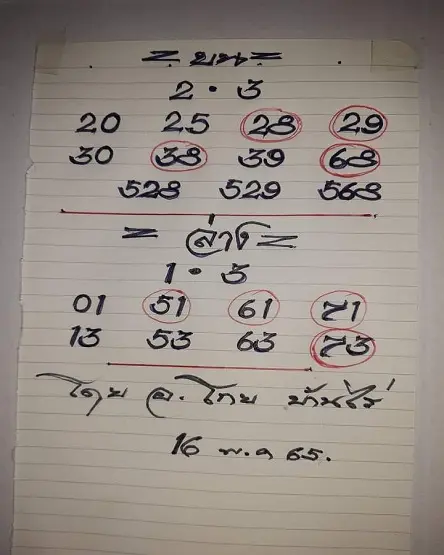 = บน =
2 • 3
20 25 28 29
30 38 39 68
528 529 568
= ล่าง =
1 • 3
01 51 61 71
13 53 63 73
โดย อ. โทย บ้านไร่
16 พ.ค 65.